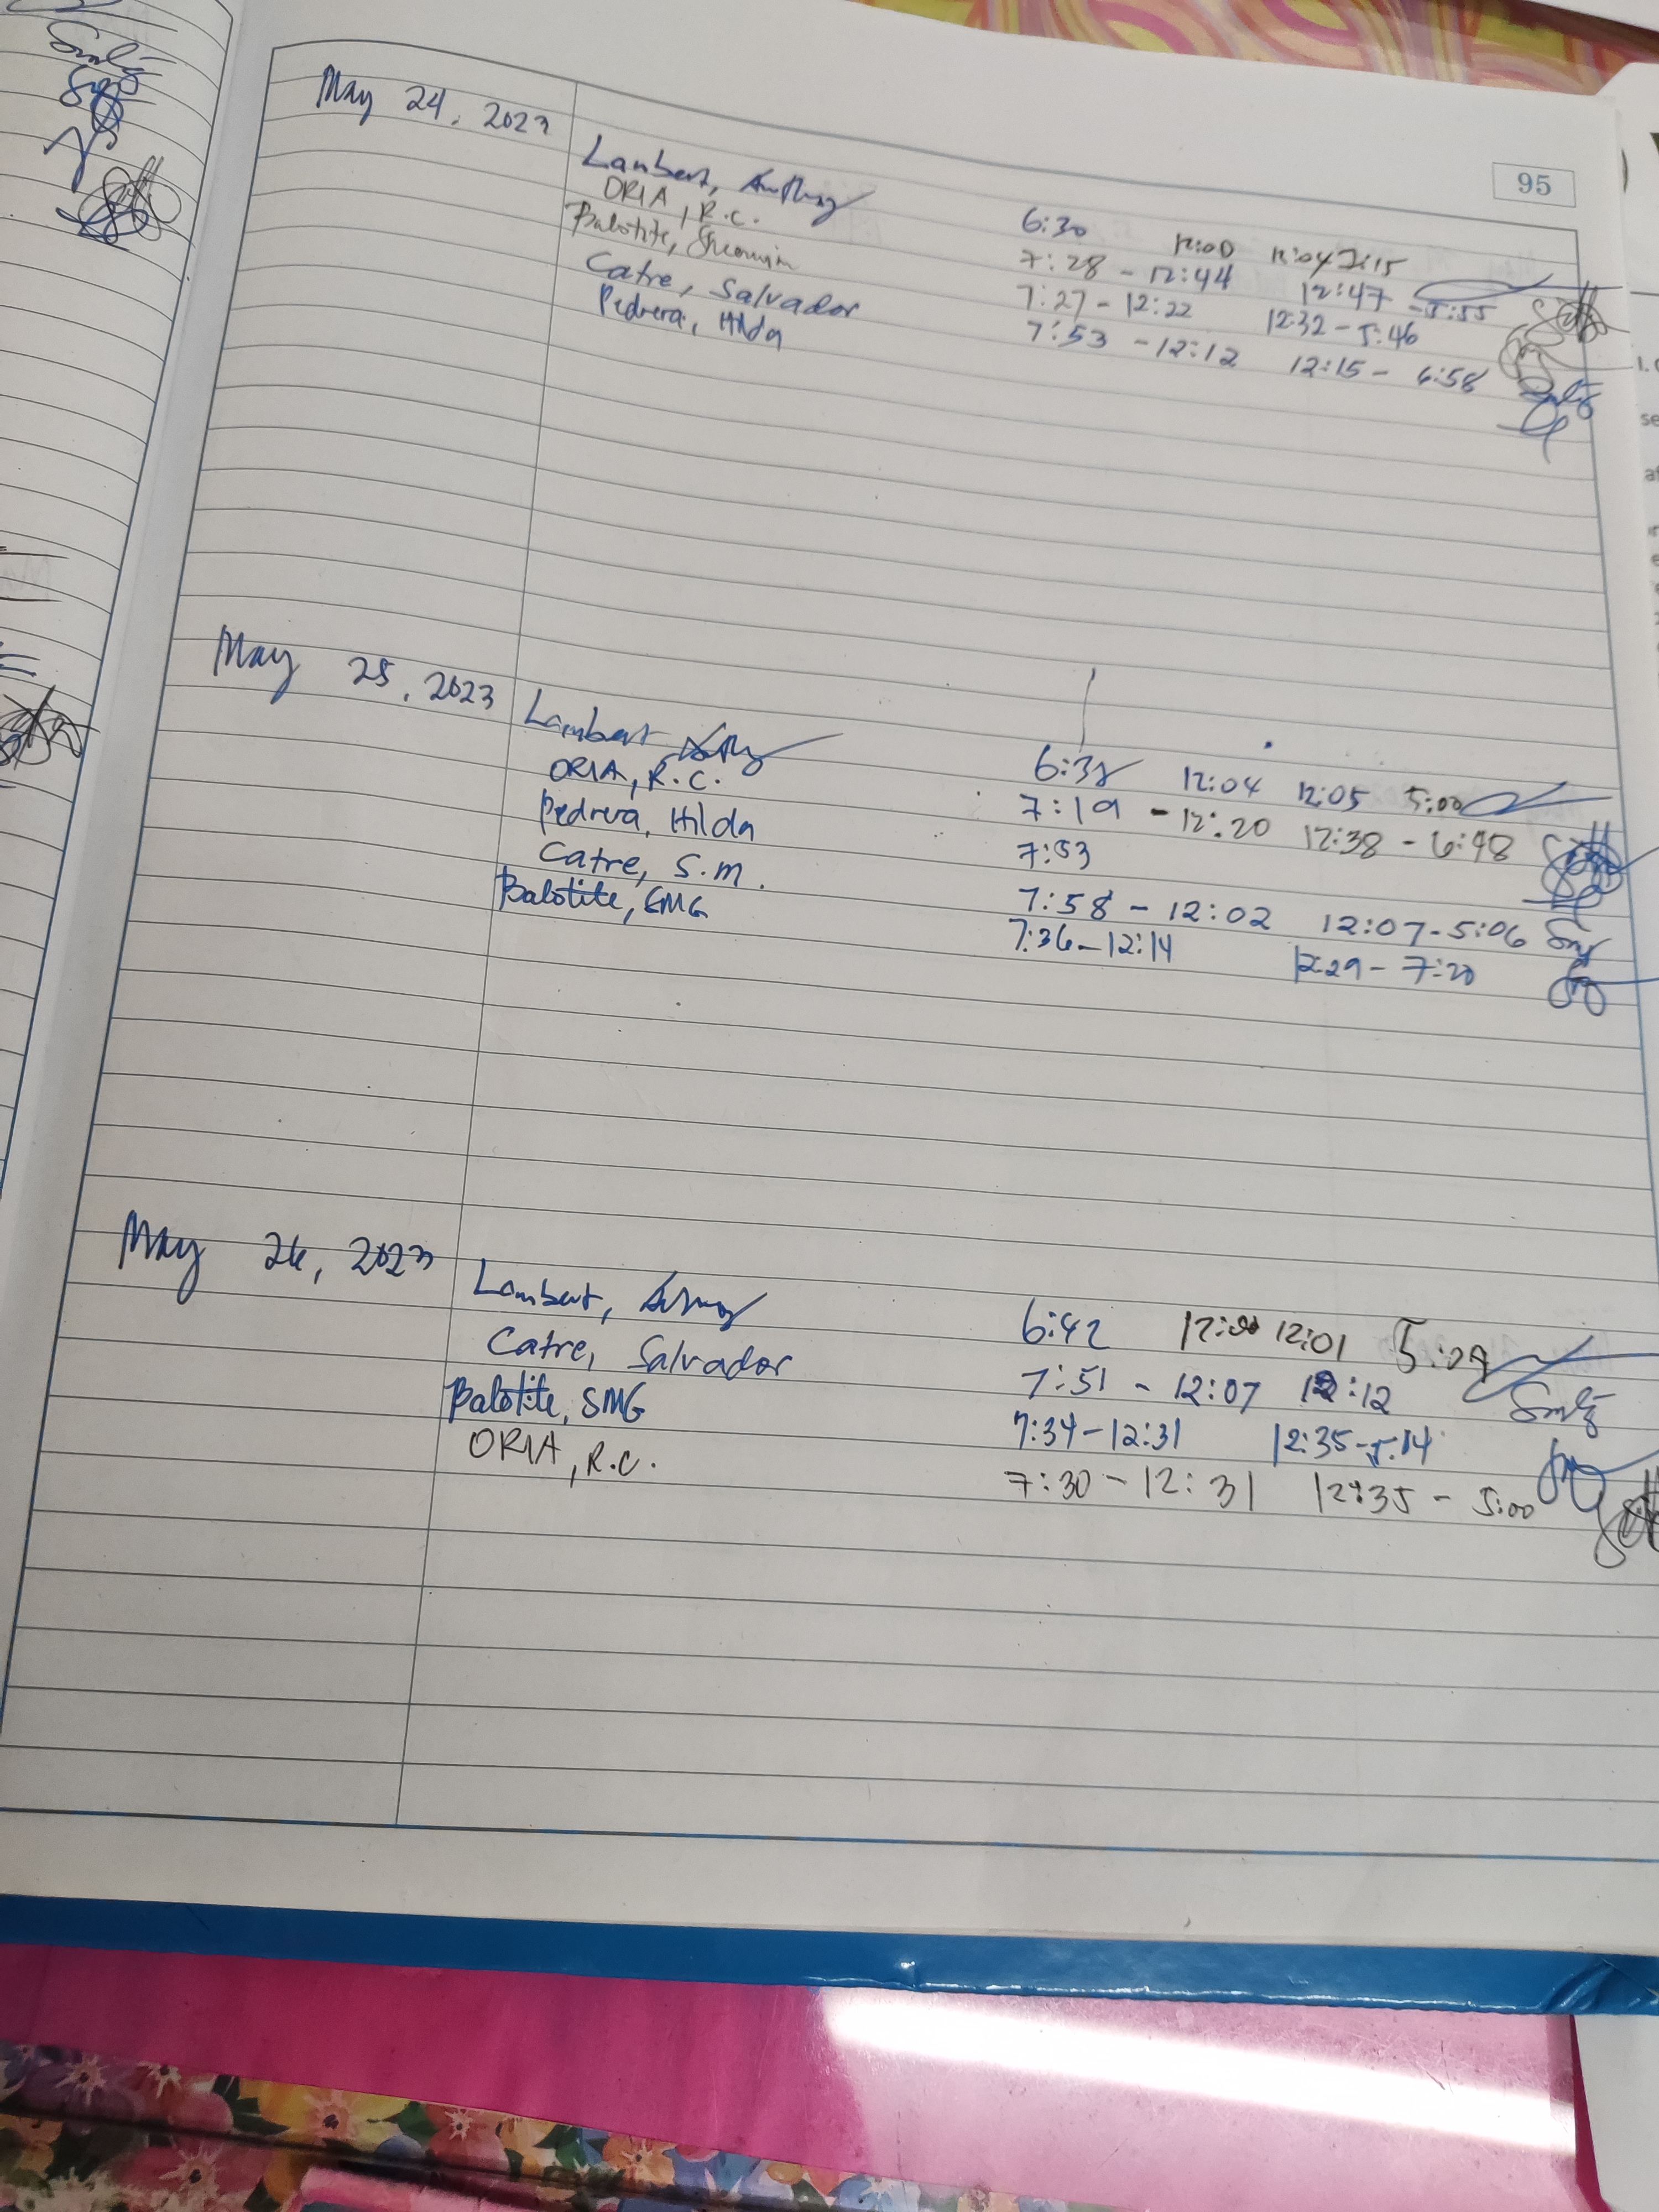 95
May 24, 2023
Lambert, Anthony 6:30 12:00 12:04 7:15
ORIA, R.C. 7:28 - 12:44 12:47 - 5:55
Balotite, 7:27 - 12:22 12:32 - 5:46
Catre, Salvador 7:53 - 12:12 12:15 - 6:58
Pedrera, Hilda
May 25, 2023
Lambert 6:38 12:04 12:05 5:00
ORIA, R.C. 7:19 - 12:20 12:38 - 6:48
Pedrera, Hilda 7:53
Catre, S.M. 7:58 - 12:02 12:07 - 5:06
Balotite, SMG 7:36 - 12:14 12:29 - 7:20
May 26, 2023
Lambert, 6:42 12:00 12:01 5:09
Catre, Salvador 7:51 - 12:07 12:12
Balotite, SMG 7:34 - 12:31 12:35 - 5:14
ORIA, R.C. 7:30 - 12:31 12:35 - 5:00